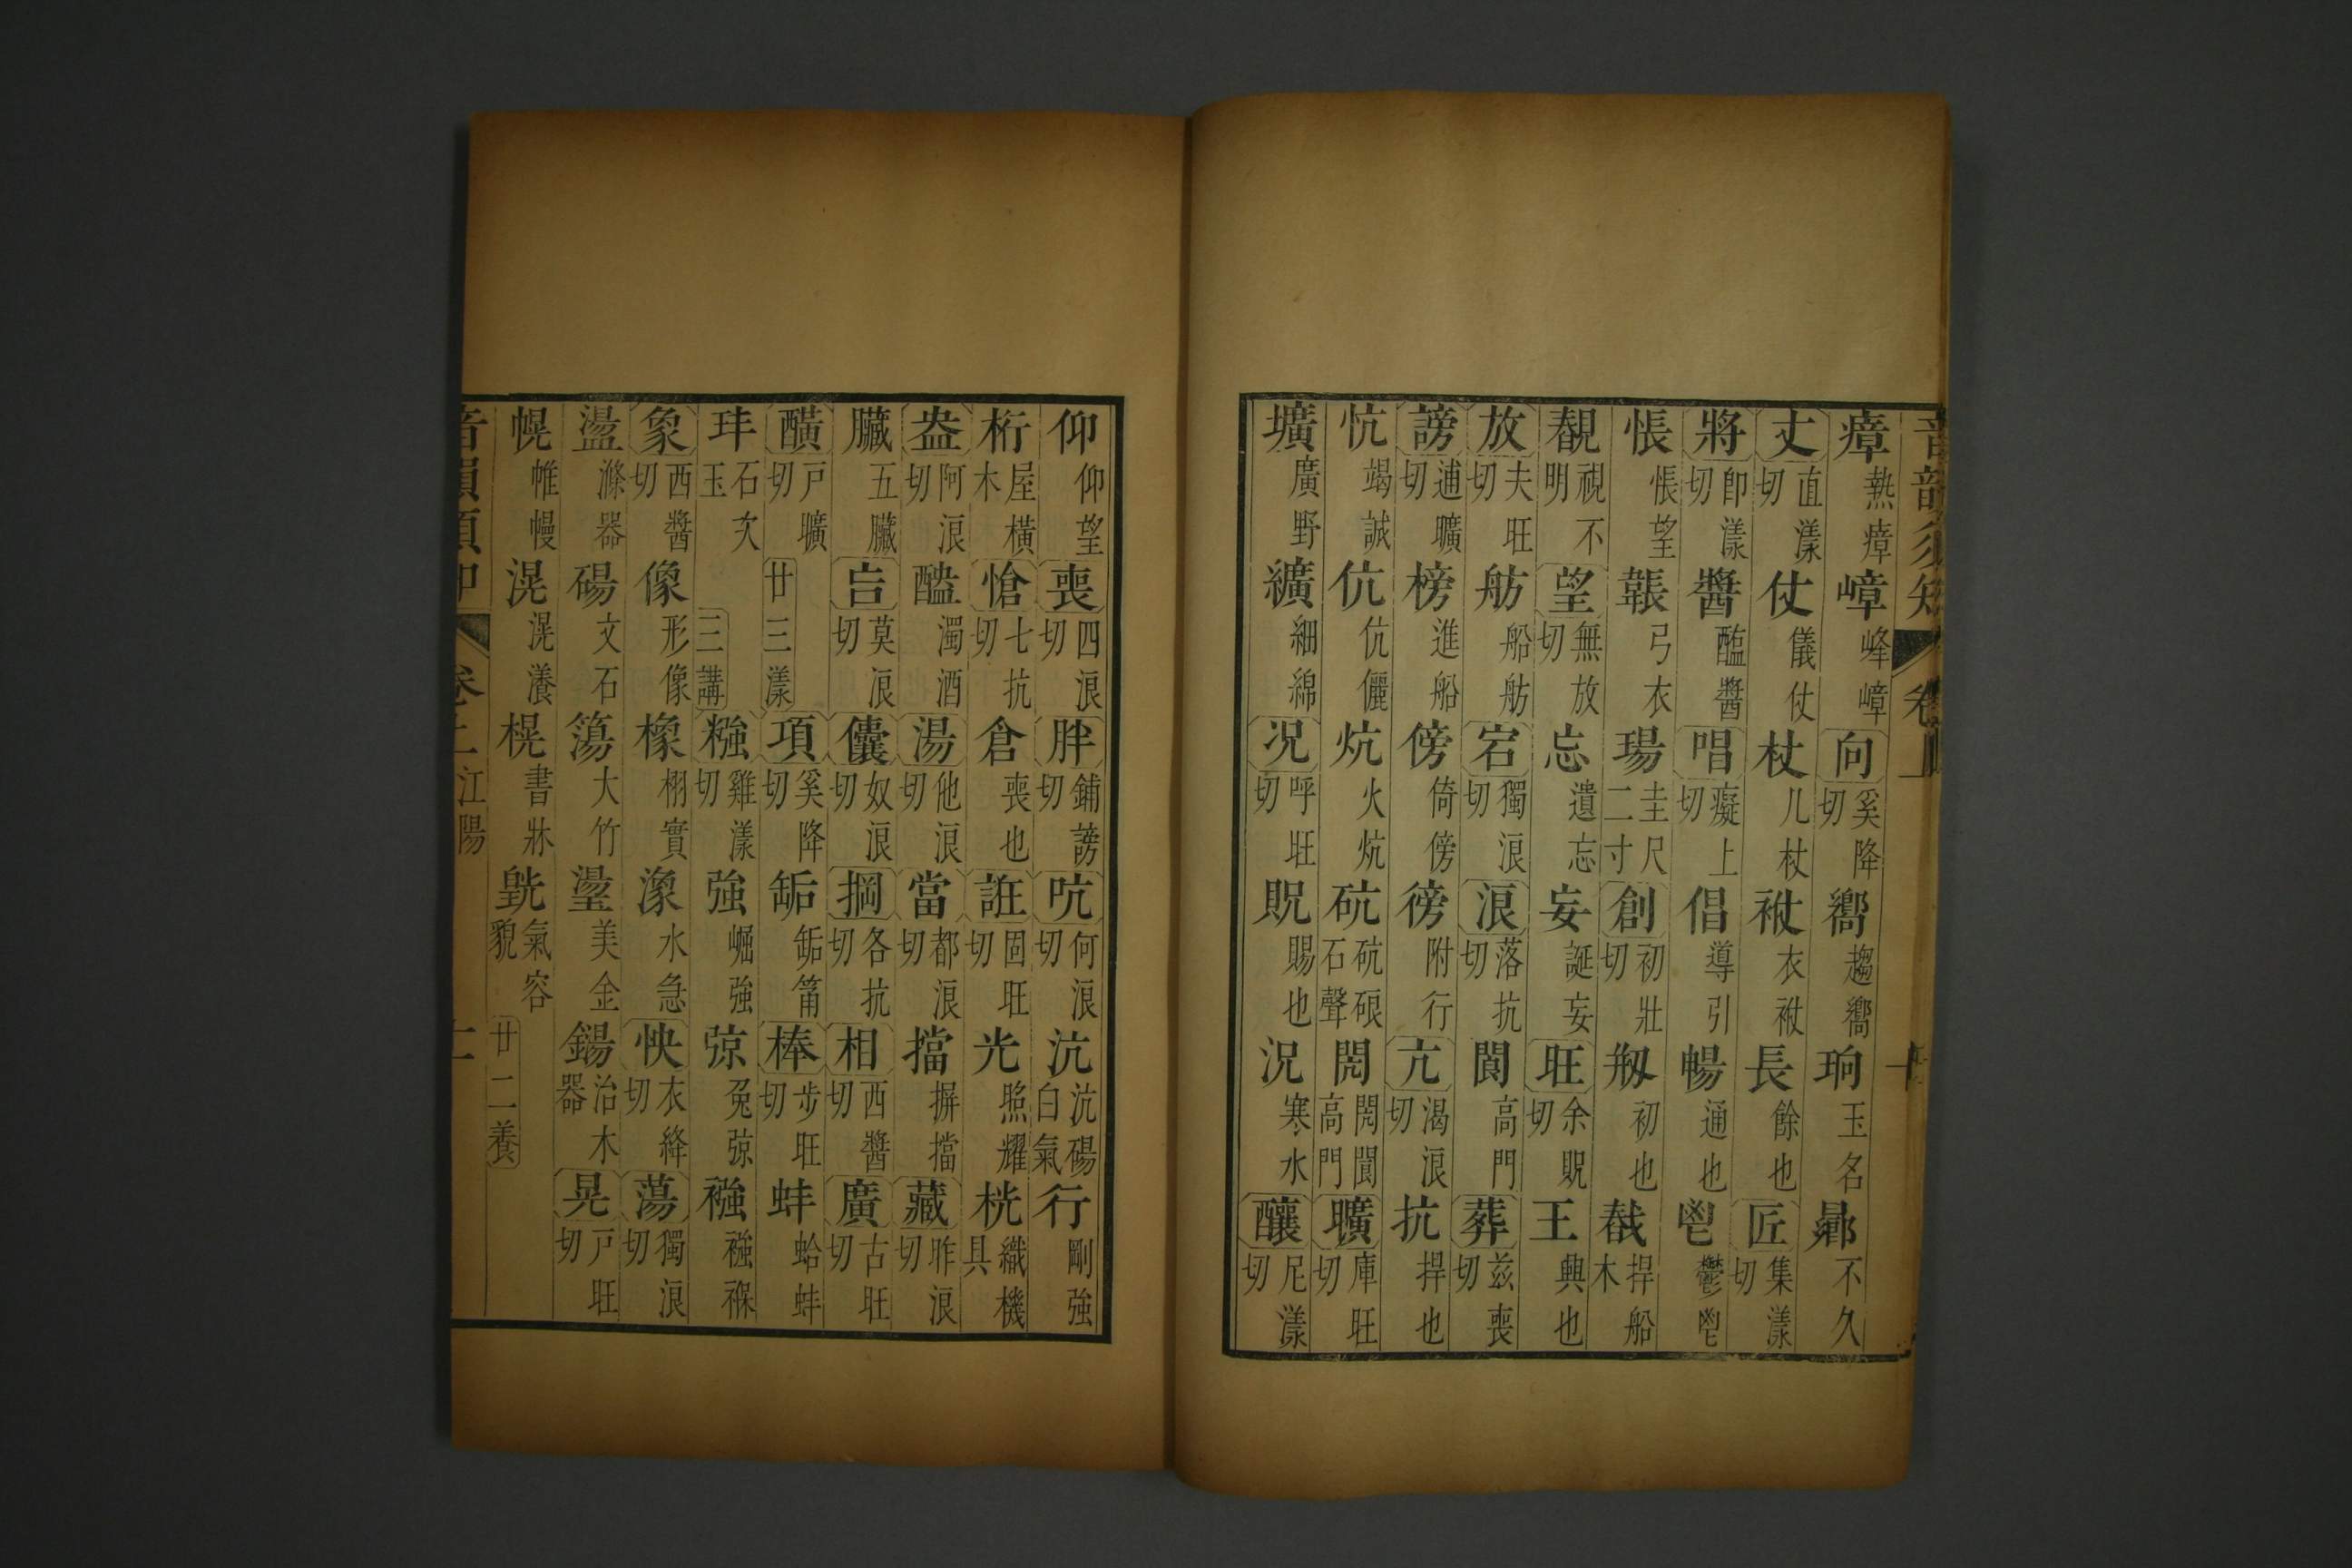 音韻須知 卷上 十
瘴熱瘴嶂峰嶂向奚降切嚮趨嚮珦玉名曏不久
丈直漾切仗儀仗杖几杖䘛衣䘛長餘也匠集漾切
將卽漾切醬醢醬唱癡上切倡導引暢通也鬯鬱鬯
悵悵望韔弓衣瑒圭尺二寸創初壯切剏初也㦼捍船木
覩視不明望無放切忘遺忘妄誕妄旺余貺切王興也
放夫旺切舫船舫宕獨浪切浪落抗切閬高門葬茲喪切
謗逋曠切榜進船傍倚傍徬附行亢渴浪切抗捍也
忼竭誠伉伉儷炕火炕砊砊硠石聲閌閌閬高門曠庫旺切
壙廣野纊細綿况呼旺切貺賜也況寒水釀尼漾切
仰仰望喪四浪切胖鋪謗切吭何浪切沆沆碭白氣行剛強
桁屋橫木愴七抗切倉喪也誑固旺切光照耀桄織機具
盎阿浪切醠濁酒湯他浪切當都浪切擋摒擋藏昨浪切
臟五臟吂莫浪切儾奴浪切掆各抗切相西醬切廣古旺切
㿠戶曠切廿三漾項奚降切缿缿筩棒步旺切蚌蛤蚌
玤石次玉三講糨雞漾切強崛強弶兔弶襁襁褓
象西醬切像形像橡栩實潒水急怏衣絳切蕩獨浪切
盪滌器碭文石簜大竹璗美金鐋治木器晃戶旺切
幌帷幔滉滉瀁榥書牀㿠氣容貌廿二養
音韻須知 卷上 江陽 十一